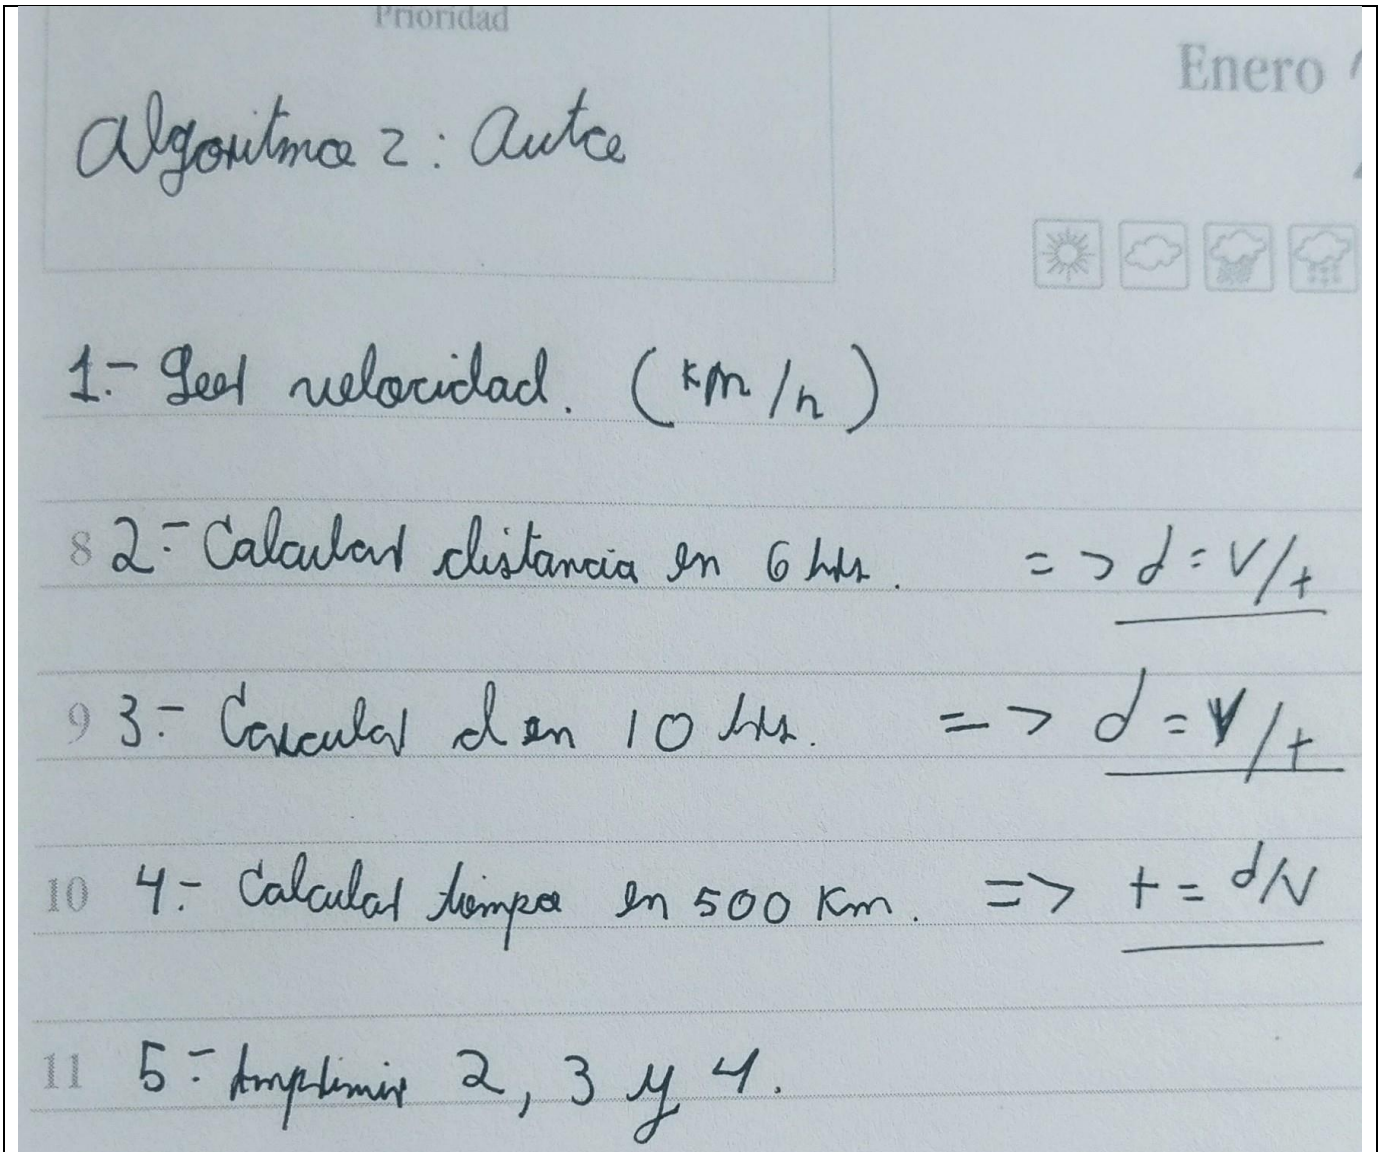 Prioridad
Enero
Algoritmo 2: Auto
1.- Leer velocidad. (km/h)
8 2.- Calcular distancia en 6 hrs. => d = v/t
9 3.- Calcular d en 10 hrs. => d = v/t
10 4.- Calcular tiempo en 500 Km. => t = d/v
11 5.- Imprimir 2, 3 y 4.